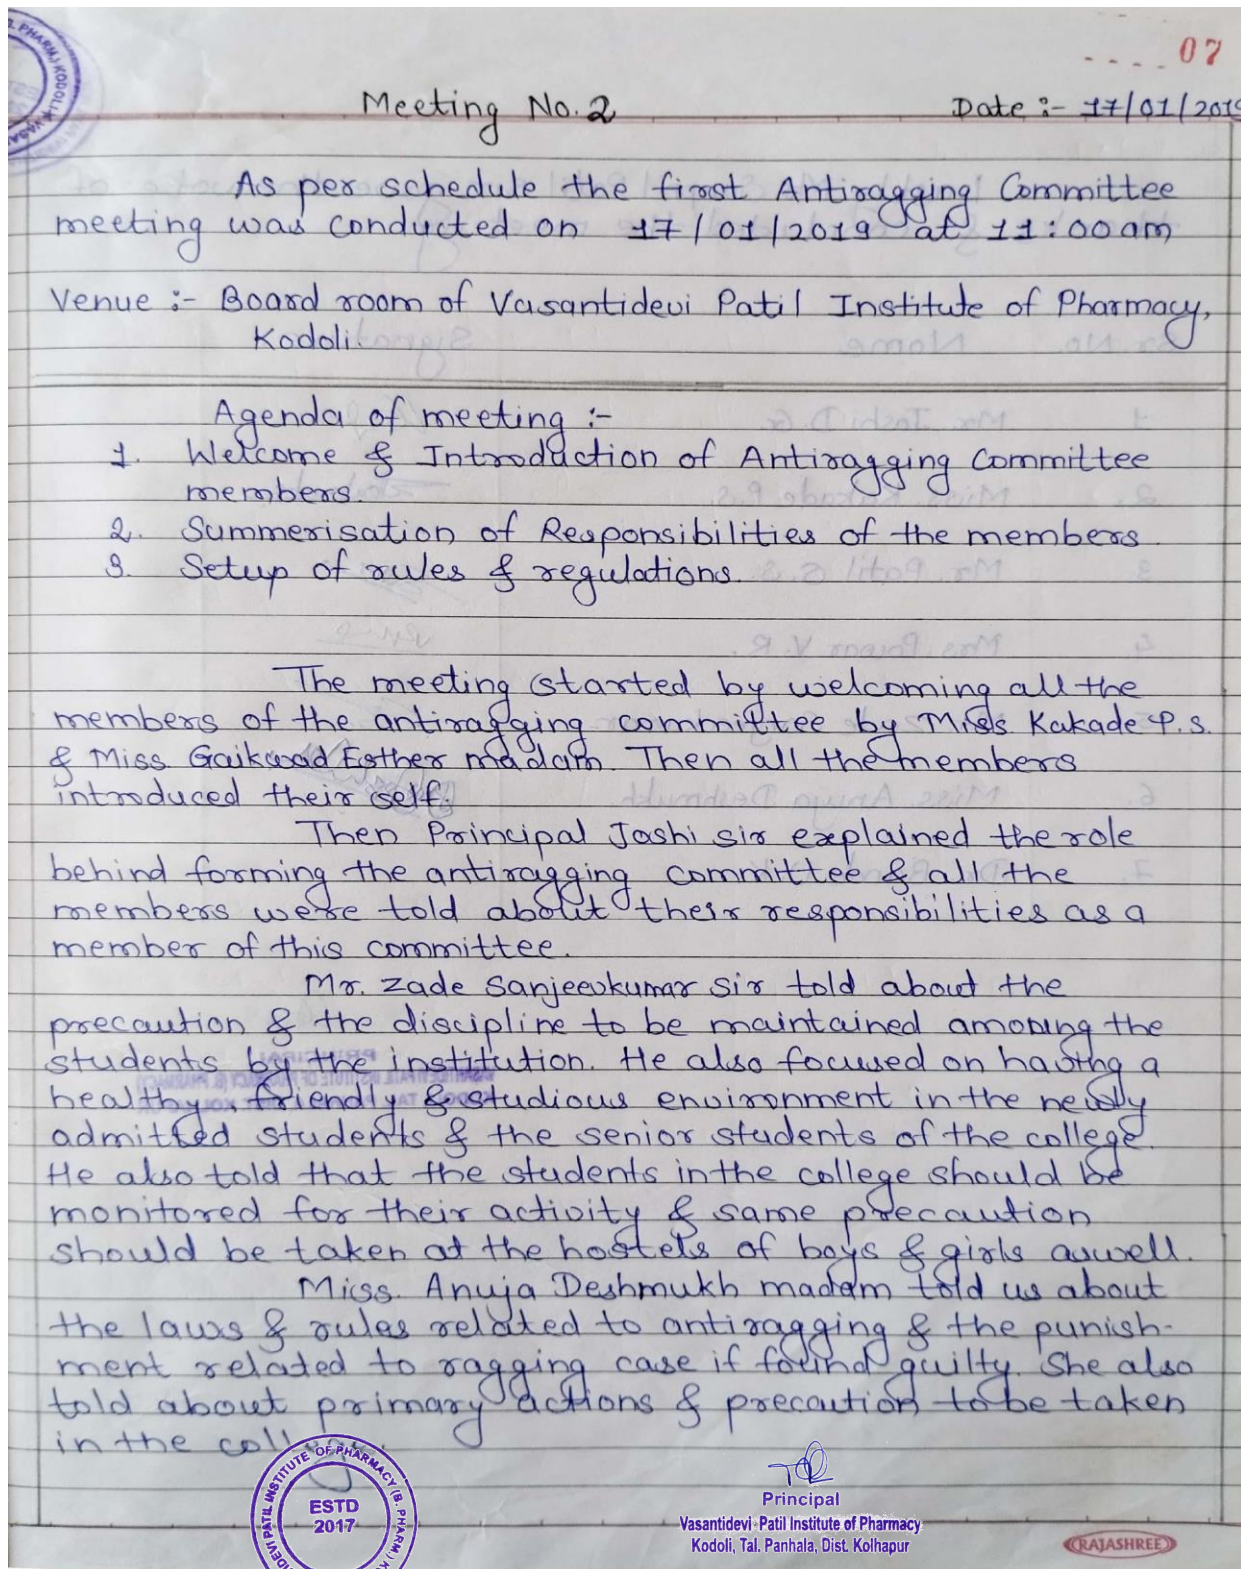 PHARM) KODOLI
07
Meeting No. 2 Date :- 17/01/2019
As per schedule the first Antiragging Committee
meeting was conducted on 17/01/2019 at 11:00 am
Venue :- Board room of Vasantidevi Patil Institute of Pharmacy,
Kodoli.
Agenda of meeting :-
1. Welcome & Introduction of Antiragging Committee
members.
2. Summerisation of Responsibilities of the members
3. Setup of rules & regulations.
The meeting started by welcoming all the
members of the antiragging committee by Miss. Kakade P.S.
& Miss. Gaikwad Esther madam. Then all the members
introduced their self.
Then Principal Joshi sir explained the role
behind forming the antiragging committee & all the
members were told about their responsibilities as a
member of this committee.
Mr. Zade Sanjeevkumar sir told about the
precaution & the discipline to be maintained among the
students by the institution. He also focused on having a
healthy, friendly & studious environment in the newly
admitted students & the senior students of the college.
He also told that the students in the college should be
monitored for their activity & same precaution
should be taken at the hostels of boys & girls aswell.
Miss. Anuja Deshmukh madam told us about
the laws & rules related to antiragging & the punish-
ment related to ragging case if found guilty. She also
told about primary actions & precaution to be taken
in the college.
PATIL INSTITUTE OF PHARMACY (B. PHARM)
ESTD
2017
Principal
Vasantidevi Patil Institute of Pharmacy
Kodoli, Tal. Panhala, Dist. Kolhapur
RAJASHREE